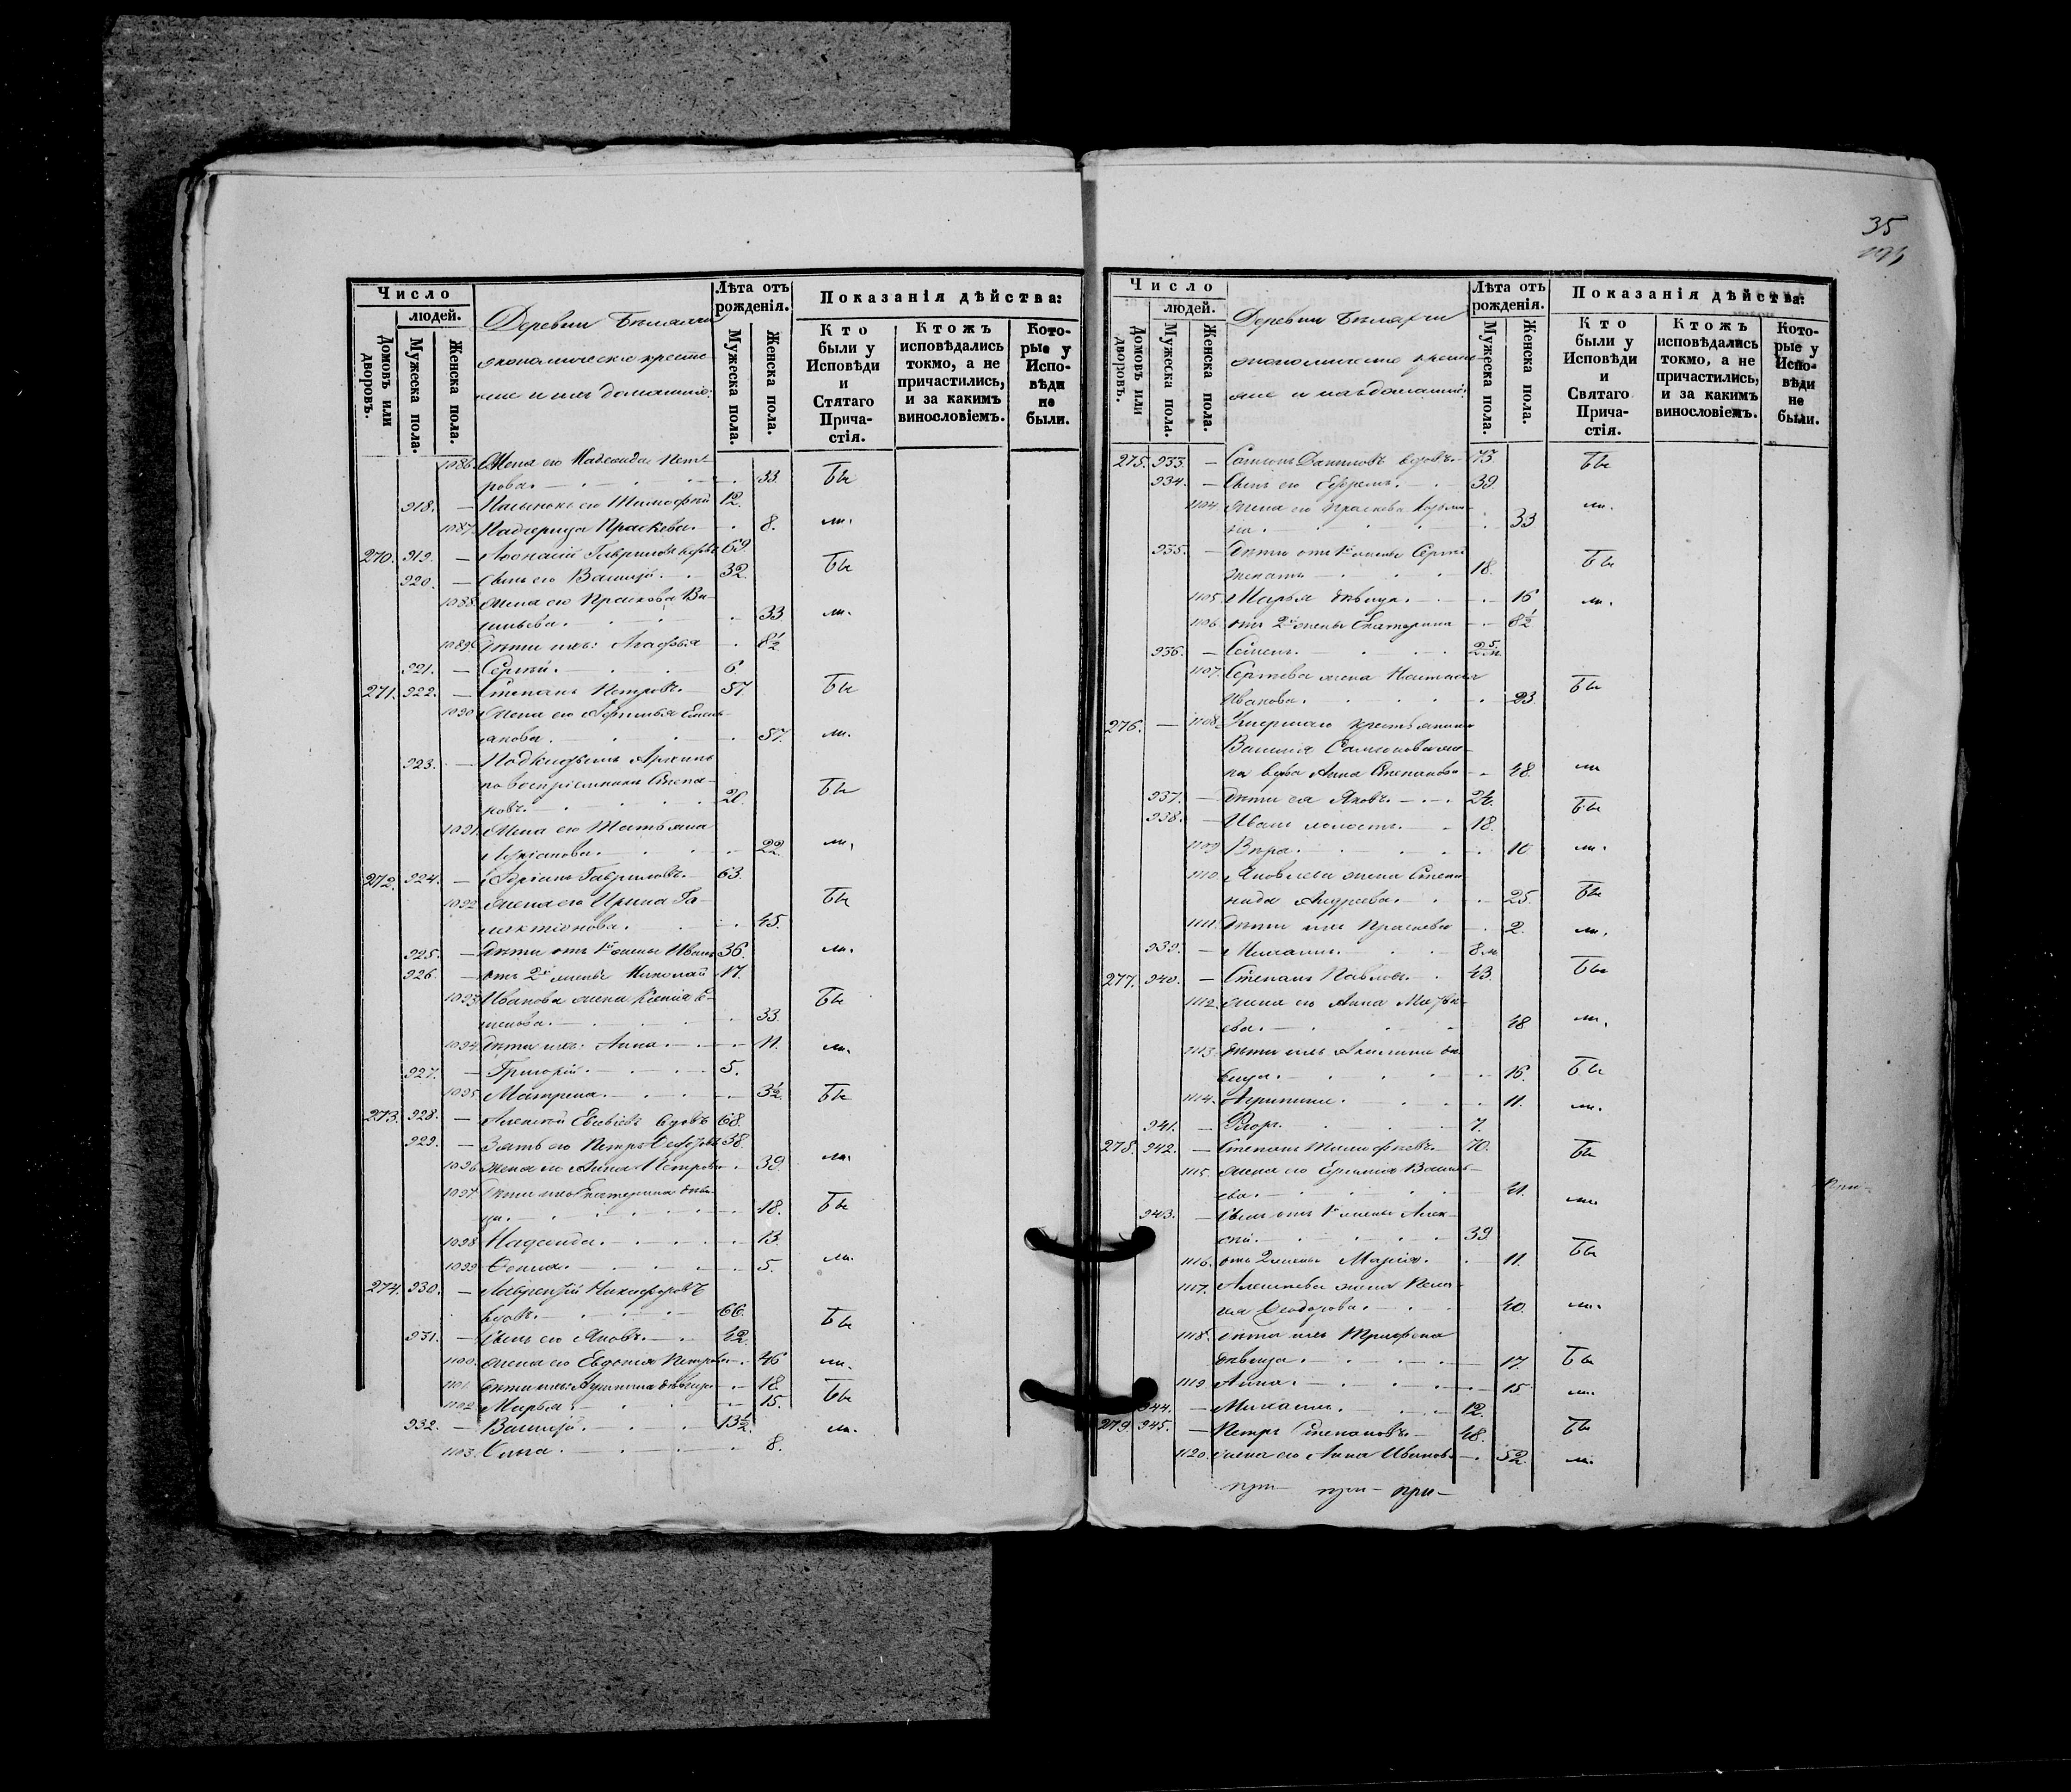 35
Число
людей.
Домовъ или дворовъ.
Мужеска пола.
Женска пола.
Деревни
экономические кресть-
яне и ихъ домашніе.
Лѣта отъ рожденія.
Мужеска пола.
Женска пола.
Показанія дѣйства:
Кто были у Исповѣди и Стятаго Прича-стія.
Ктожъ исповѣдались токмо, а не причастились, и за какимъ винословіемъ.
Кото-рые у Испо-вѣди не были.
1086. Жена его Надежда Пет-
рова. 33. Бы
918. — Пасынокъ его Тимофей 12.
1087. Падчерица Прасковья. 8. ли.
270. 919. — Аѳонасій Гавриловъ вдовъ 69.
920. — Сынъ его Василій. 32. Бы
1088. Жена его Прасковья Ва-
сильева. 33. ли.
1089. Дѣти ихъ: Агафья 8½
921. — Сергѣй. 6.
271. 922. — Степанъ Петровъ. 57. Бы
1090. Жена его Афимья Емель-
янова. 57. ли.
923. — Подкидышъ Архипъ
по воспріемнику Степа-
новъ. Бы
1091. Жена его Татьяна
22. ли.
272. 924. — Гавриловъ. 63.
1092. Жена его Ирина Га-
лактіонова. 45. Бы
925. — Дѣти отъ 1й жены Иванъ 36. ли.
926. — отъ 2й жены Николай 17.
1093. Иванова жена Ксенія
33. Бы
1094. Дѣти ихъ: Анна. 11. ли.
927. — Григорій. 5.
1095. Матрена. 3½ Бы
273. 928. — Алексѣй вдовъ 68.
929. — Зять его Петръ 38.
1096. Жена его Анна Петрова 39. ли.
1097. Дѣти ихъ Екатерина дѣви-
ца. 18. Бы
1098. Надежда. 13.
1099. 5. ли.
274. 930. — Лаврентій Никифоровъ
вдовъ. 66. Бы
931. — Сынъ его Яковъ. 42.
1100. Жена его Евдокія Петрова 46 ли.
1101. Дѣти ихъ: Агрипина дѣвица 18.
1102. Марья. 15. Бы
932. — Василій. 13½ ли.
1103. 8.
Число
людей.
Домовъ или дворовъ.
Мужеска пола.
Женска пола.
Деревни
экономическіе кресть-
яне и ихъ домашніе.
Лѣта отъ рожденія.
Мужеска пола.
Женска пола.
Показанія дѣйства:
Кто были у Исповѣди и Святаго Прича-стія.
Ктожъ исповѣдались токмо, а не причастились, и за какимъ винословіемъ.
Кото-рые у Испо-вѣди не были.
275. 933. — Самсонъ Даниловъ вдовъ. 73. Бы
934. — Сынъ его Ефремъ. 39.
1104. Жена его Прасковья Кузьми-
на. 33 ли.
935. — Дѣти отъ 1й жены Сергѣй
женатъ 18. Бы
1105. Марья дѣвица. 16 ли.
1106. отъ 2й жены Екатерина 8½
936. — Семенъ.
1107. Сергѣева жена Настасья
Иванова. 23. Бы
276. — 1108. Умершаго крестьянина
Василія Самсонова же-
на вдова Анна Степанова 48. ли
937. — Дѣти ея Яковъ. Бы
938. — Иванъ холостъ. 18.
1109. Вѣра. 10. ли.
1110. Яковлева жена Степа-
нида Андреева. 25. Бы
1111. Дѣти ихъ Прасковья 2. ли.
939. — Михаилъ. 8. м.
277. 940. — Степанъ Павловъ. 43. Бы
1112. Жена его Анна Матвѣ-
ева. 48 ли.
1113. Дѣти ихъ Акилина дѣ-
вица. 16. Бы
1114. Агрипина. 11. ли.
941. — Флоръ. 7.
278. 942. — Степанъ Тимофѣевъ. 70. Бы
1115. Жена его Василь-
ева. ли.
943. — Сынъ отъ 1й жены Алек-
сѣй. 39. Бы
1116. отъ 2 жены Марія. 11.
1117. Алексѣева жена Пела-
гея Ѳеодорова. 40. ли.
1118. Дѣти ихъ Трифена
дѣвица. 17. Бы
1119. Анна. 15. ли.
944. — Михаилъ. 12.
279. 945. — Петръ Степановъ. 48. Бы
1120. Жена его Анна Иванова 52. ли.
при- при- при-